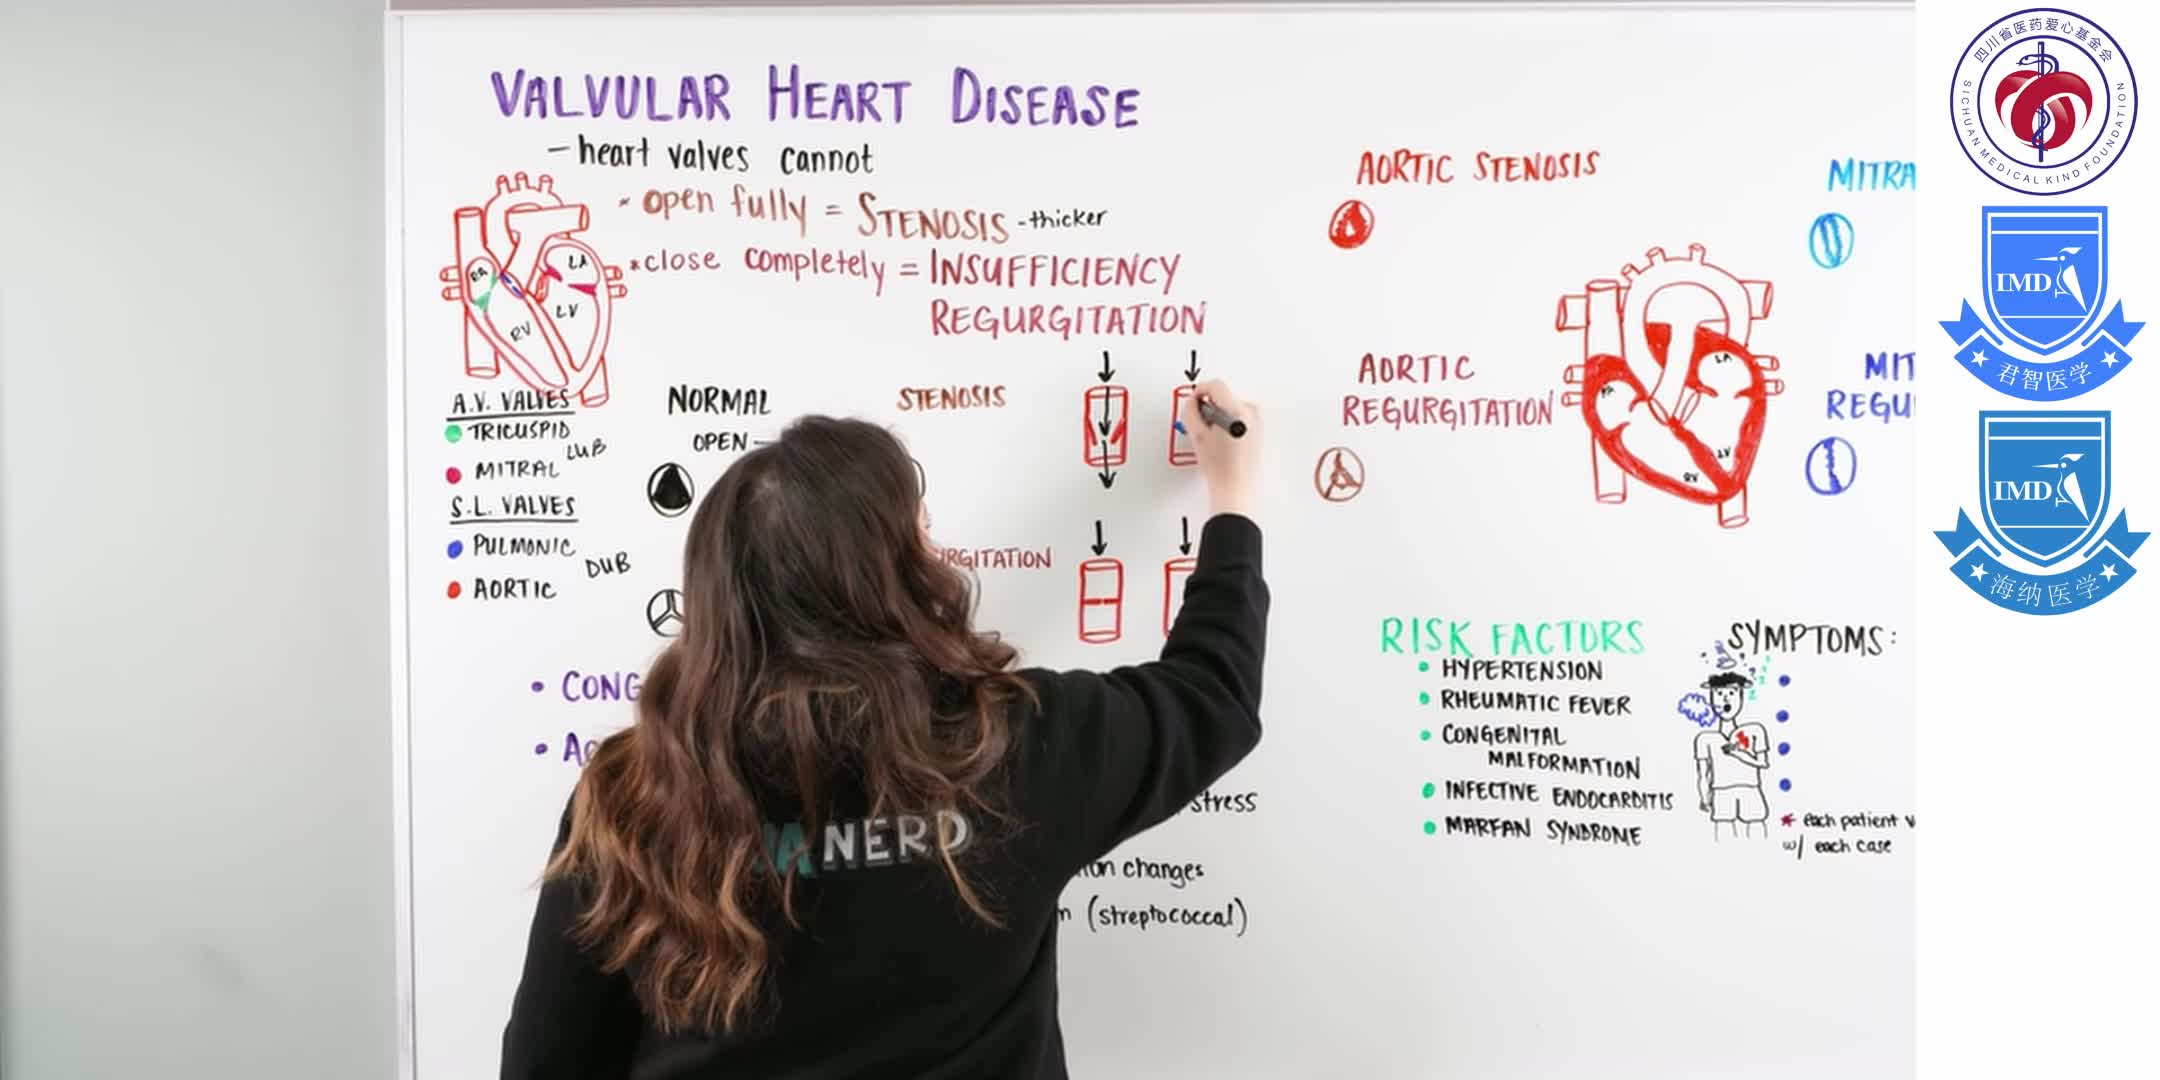 VALVULAR HEART DISEASE
- heart valves cannot
* open fully = STENOSIS - thicker
* close completely = INSUFFICIENCY
REGURGITATION
RA
LA
LV
RV
A.V. VALVES
TRICUSPID
LUB
MITRAL
S.L. VALVES
PULMONIC
DUB
AORTIC
NORMAL
OPEN
STENOSIS
URGITATION
• CONG
stress
changes
(streptococcal)
NERD
AORTIC STENOSIS
MITRA
AORTIC
REGURGITATION
MIT
REGU
RA
LA
LV
RV
RISK FACTORS
• HYPERTENSION
• RHEUMATIC FEVER
• CONGENITAL
MALFORMATION
• INFECTIVE ENDOCARDITIS
• MARFAN SYNDROME
SYMPTOMS:
* each patient v
w/ each case
四川省医药爱心基金会
SICHUAN MEDICAL KIND FOUNDATION
IMD
君智医学
IMD
海纳医学